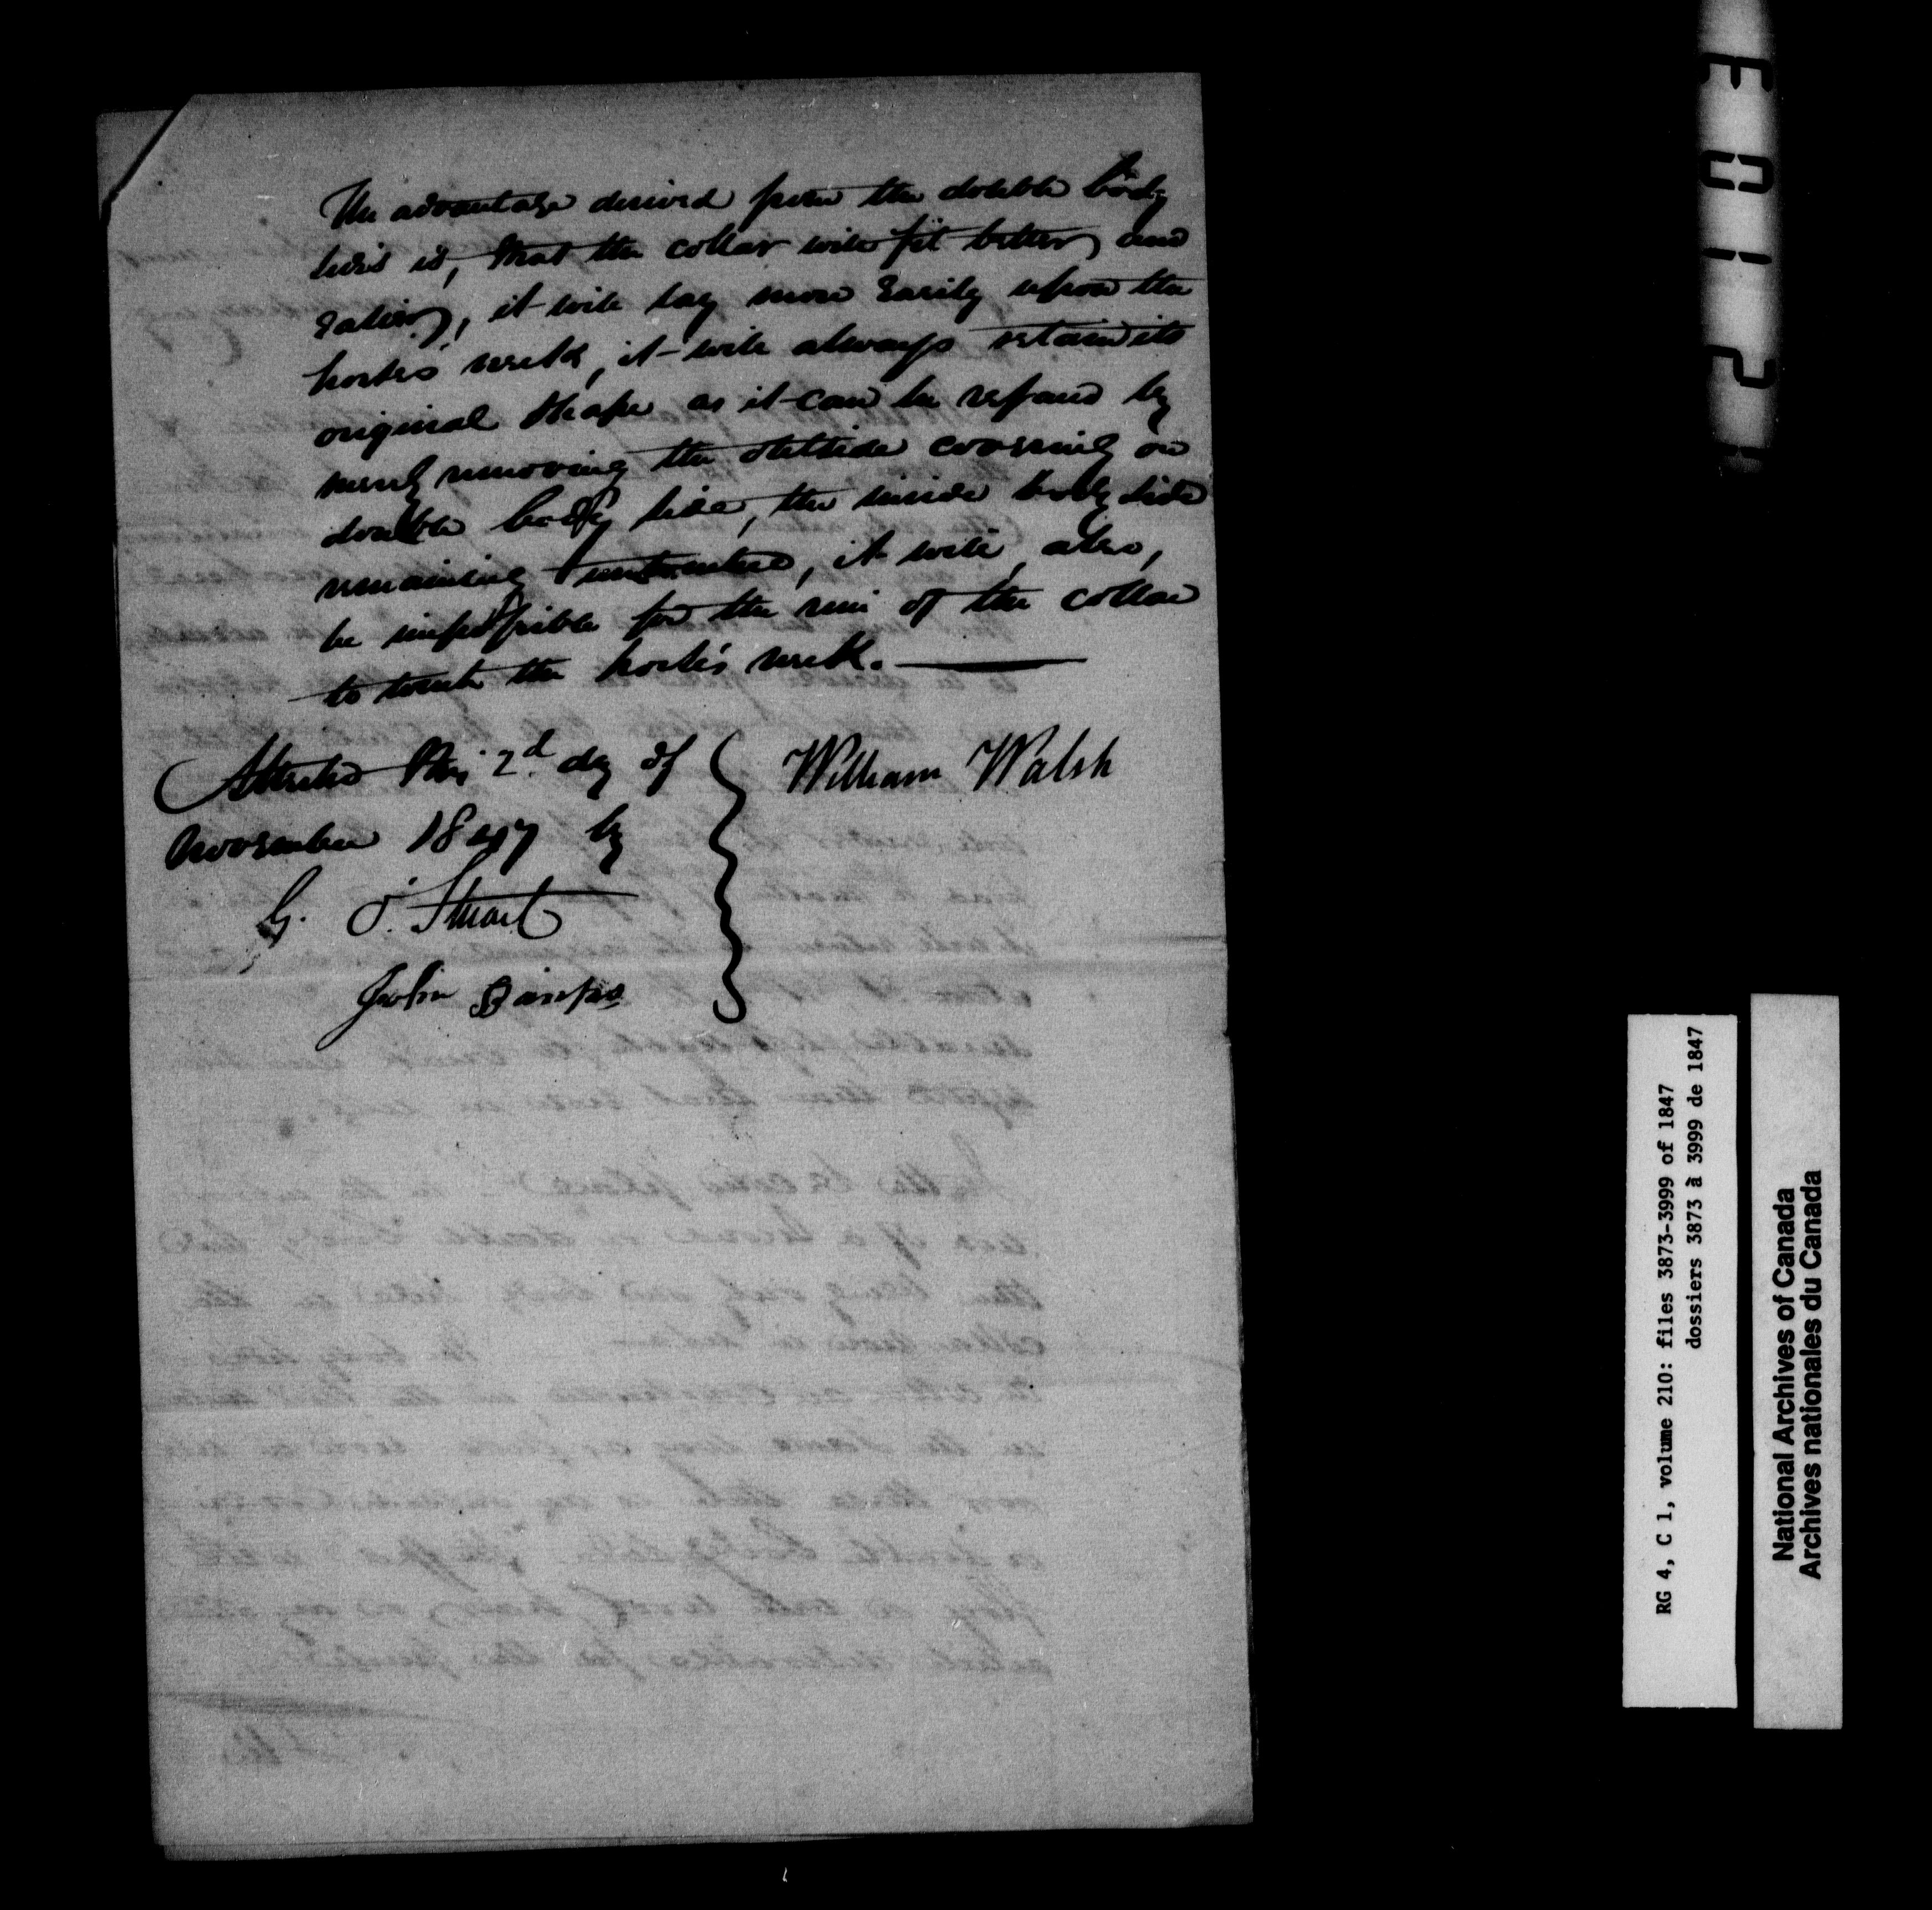 The advantage derived from the double body
side is, that the collar will fit better, and
easier, it will lay more easily upon the
horse's neck, it will always retain its
original shape as it can be repaired by
merely removing the outside covering or
double body side, the inside body side
remaining untouched, it will, also,
be impossible for the rim of the collar
to touch the horse's neck.
Attested this 2d day of
November 1847 by
G. O. Stuart
John
William Walsh
F012
RG 4, C 1, volume 210: files 3873-3999 of 1847
dossiers 3873 à 3999 de 1847
National Archives of Canada
Archives nationales du Canada